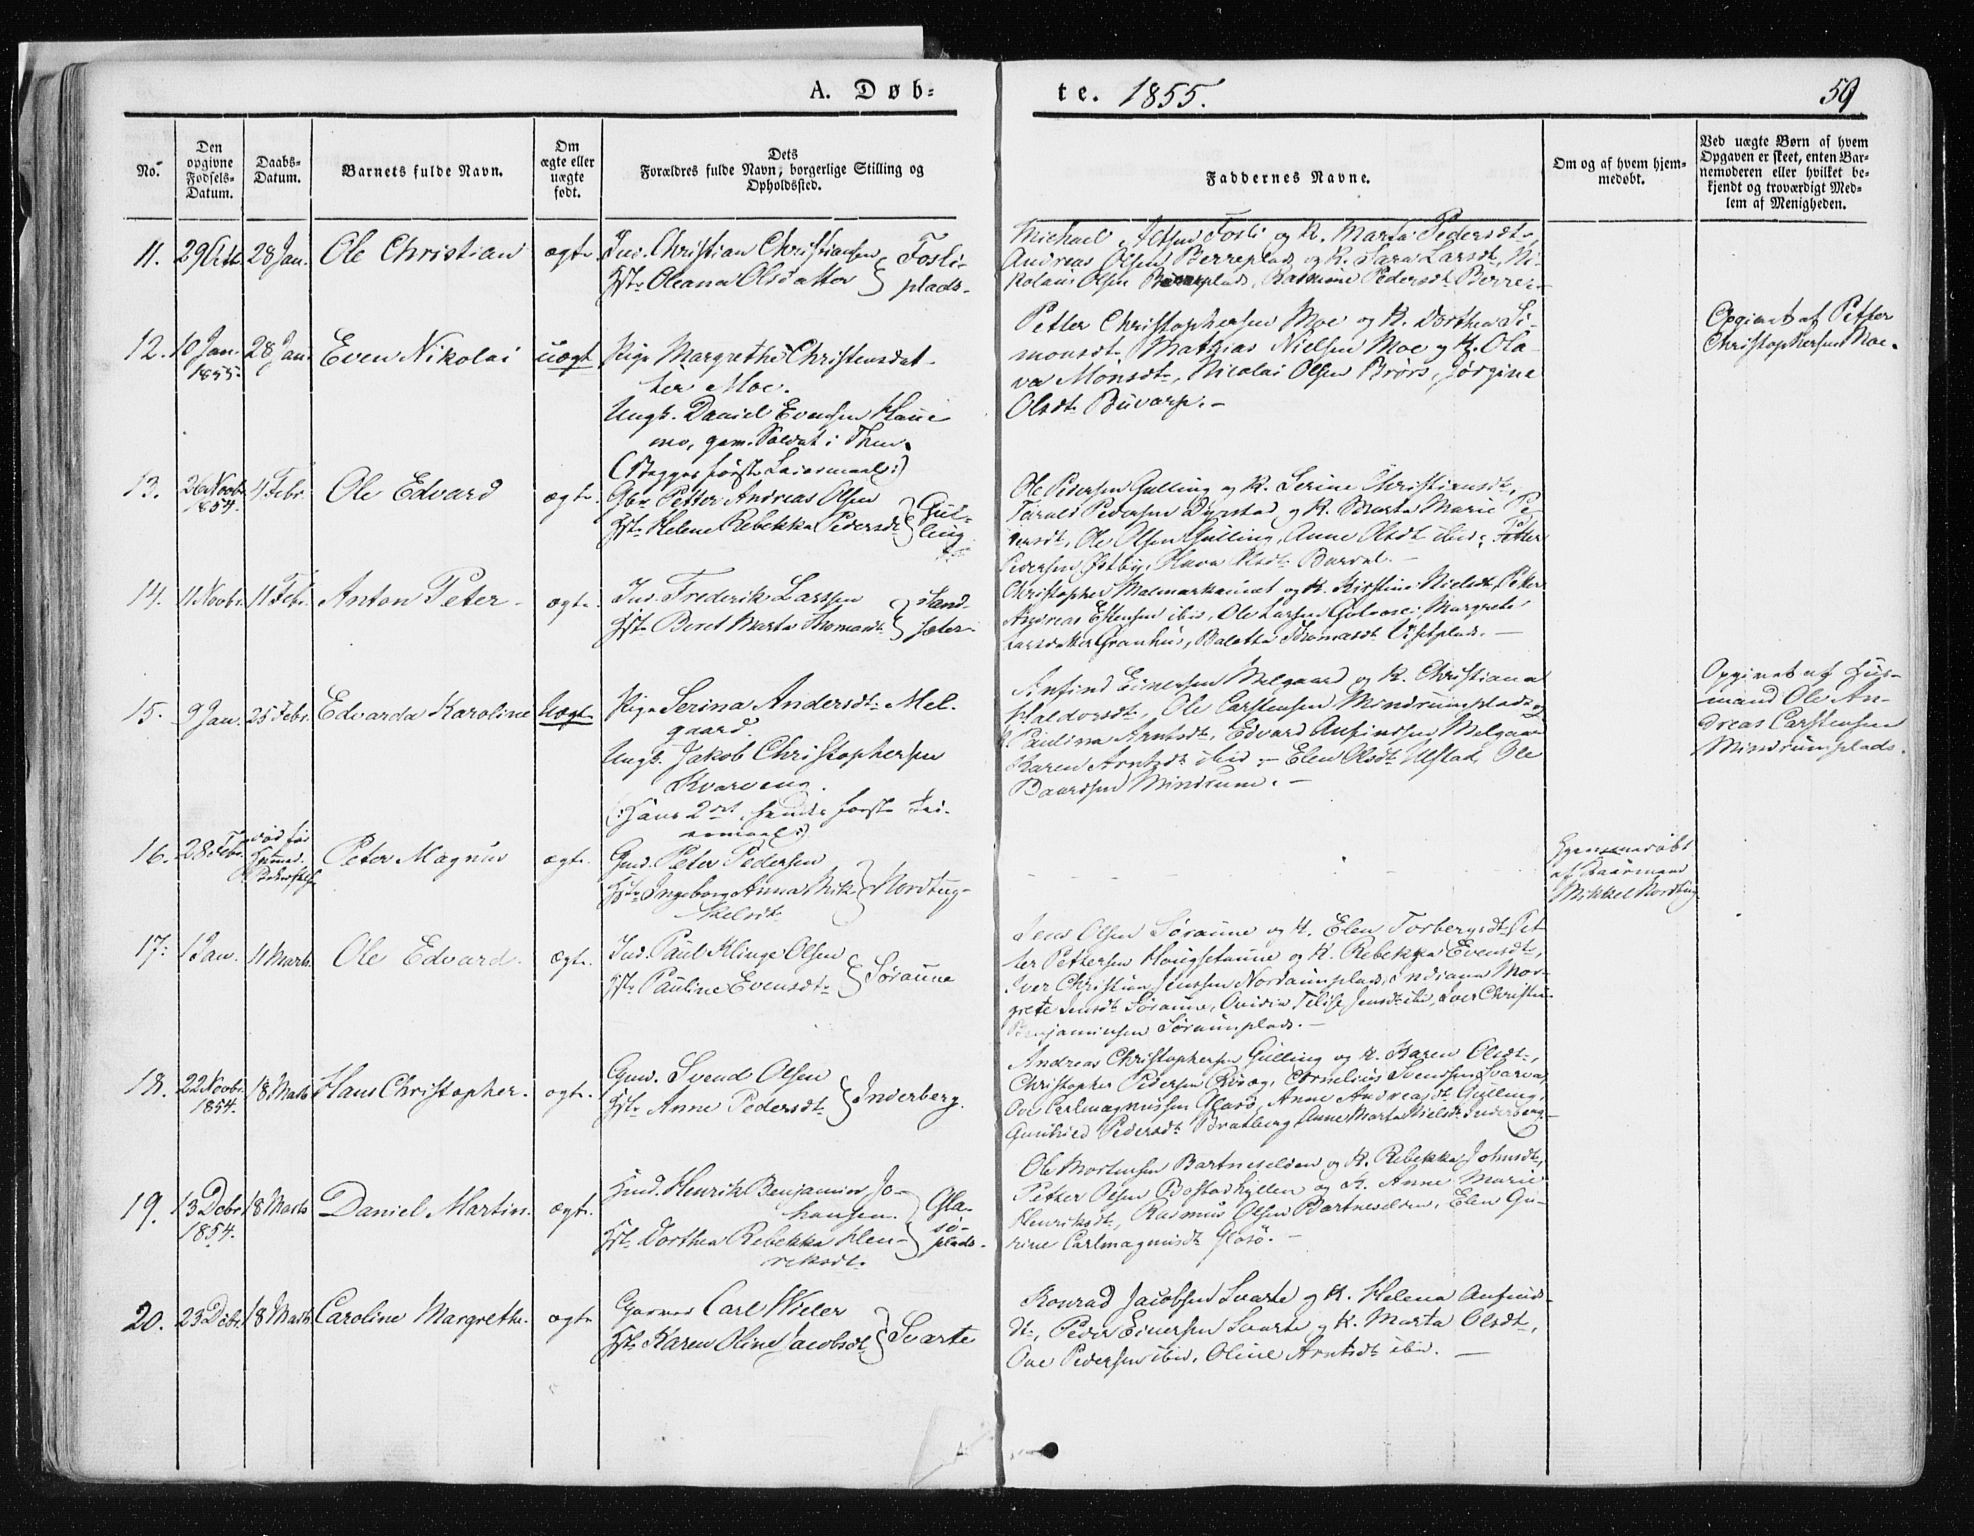 A. Døb-
te. 1855.
59
No.
Den opgivne Fødsels-Datum.
Daabs-Datum.
Barnets fulde Navn.
Om ægte eller uægte født.
Dets Forældres fulde Navn, borgerlige Stilling og Opholdssted.
Faddernes Navne.
Om og af hvem hjemmedøbt.
Ved uægte Børn af hvem Opgaven er skeet, enten Barnemoderen eller hvilket bekjendt og troværdigt Medlem af Menigheden.
11. 28 Jan. Ole Christian ægte
Ind. Christian Christiansen
Hst. Oleana Olsdatter
Fosli-
plads.
Michael Fosli og K. Marta Pedersdt.,
Andreas Olsen Berreplads og K. Sara Larsdt., Ni-
kolaus Olsen Berreplads, Pedersdt. Berre.
12. 10 Jan. 1855. 28 Jan. Even Nikolai uægte
Pige Margrethe Christensdat-
ter Moe.
Ungk. Daniel Evensen
mo, gem. Soldat i
første Leiermaal:)
Petter Christophersen Moe og K. Dorthea Si-
monsdt., Mathias Nielsen Moe og K. Ola-
va Monsdt., Nicolai Olsen Brørs, Jørgine
Olsdt. Buvarp.
Opgivet af Petter
Christophersen Moe.
13. 26 Novbr. 1854. 4 Febr. Ole Edvard ægte
Gbr. Petter Andreas Olsen
Hst. Helene Rebekka Pedersdt.
Gul-
ling
Ole Pedersen Gulling og K. Serine Christiansdt.,
Pedersen Dyrstad og K. Marta Marie Pe-
dersdt., Ole Olsen Gulling, Anne Olsdt. ibid., Petter
Pedersen Østby, Olava Olsdt. Bardal.
14. 11 Novbr. 11 Febr. Anton Peter ægte
Ind. Frederik Larssen
Hst. Beret Marta Thomasdt.
Sand-
sæter.
Christopher og K. Kirstine Nielsdt., Peter
Andreas Estensen ibid., Ole Larsen Gulaase, Margrete
Larsdatter Granhus, Thomasdt.
15. 9 Jan. 25 Febr. Edvarda Karoline Uægte
Pige Serina Andersdt. Mel-
gaard.
Ungk. Jakob Christophersen
Kvarving.
(:Hans 2det, hendes første Lei-
ermaal:)
Anfind Einersen Melgaard og K. Christiana
Haldorsdt., Ole Carstensen Mindrumplads og
K. Paulina Arntsdt., Edvard Anfindsen Melgaard
Karen Arntsdt. ibid., Elen Olsdt. Ulstad, Ole
Baardsen Mindrum.
Opgivet af Huus-
mand Ole An-
dreas Carstensen
Mindrumplads.
16. 28 Febr. død før Peter Magnus ægte
Gmd. Peter Pedersen
Hst. Ingeborg Anna Mik-
kelsdt.
Nordtug
Hjemmedøbt
af
Mikkel Nordtug
17. 1 Jan. 4 Marts Ole Edvard ægte
Ind. Paul Klinge Olsen
Hst. Pauline Evensdt.
Søraune
Jens Olsen Søraune og K. Elen Torbergsdt., Pet-
ter Pettersen Hougsetaune og K. Rebekka Evensdt.,
Iver Christian Jenssen Nordaunplads, Indiana Mar-
grete Jensdt. Søraune, Ovidia Jensdt. ibid., Iver Christian
Benjaminsen Søraunplads.
18. 22 Novbr. 1854. 18 Marts Hans Christopher ægte
Gmd. Svend Olsen
Hst. Anne Pedersdt.
Inderberg.
Andreas Christophersen Gulling og K. Karen Olsdt.,
Christopher Pedersen, Cornelius Svendsen Svarva,
Ove Carlmagnussen Glasø, Anne Andreasdt. Gulling,
Pedersdt. Bratberg, Anne Marta Nielsdt. Inderberg
19. 13 Debr. 1854. 18 Marts Daniel Martin ægte
Hmd. Henrik Benjamin Jo-
hansen.
Hst. Dorthea Rebekka Hen-
riksdt.
Gla-
sø-
plads.
Ole Mortensen Bartneselden og K. Rebekka Johnsdt.,
Petter Olsen Bostadhyllen og K. Anne Marie
Henriksdt., Rasmus Olsen Bartneselden, Elen Gu-
rine Carlmagnusdt. Glasø.
20. 23 Debr. 18 Marts Caroline Margrethe ægte
Garver Carl Wieler
Hst. Karen Oline Jacobsdt.
Svarte
Konrad Jacobsen Svarte og K. Helena Anfinds-
dt., Peder Einersen Svarte og K. Marta Olsdt.,
Ove Pedersen ibid., Oline Arntsdt. ibid.